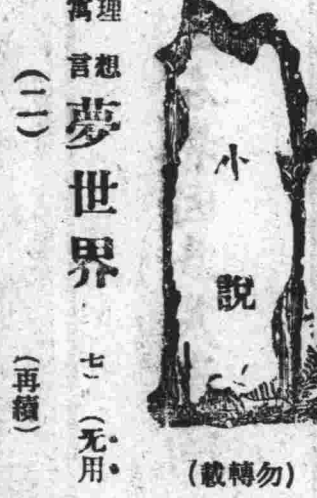 小說
(勿轉載)
理想
寓言
夢世界
七
(无用
(二)
(再續)